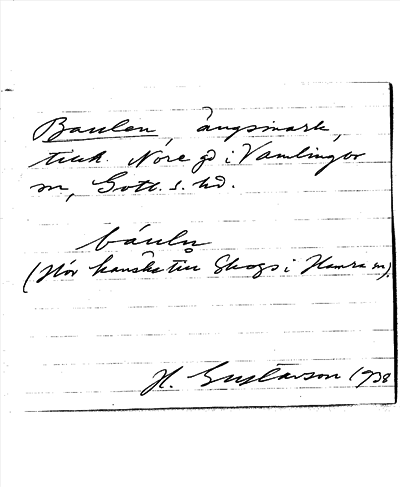 Baulen, ängsmark,
till h. Nore gd i Vamlingbo
sn, Gotl. s. hd.
båulņ
(Hör kanske till Skogs i Hamra sn).
H. Gustavson 1938